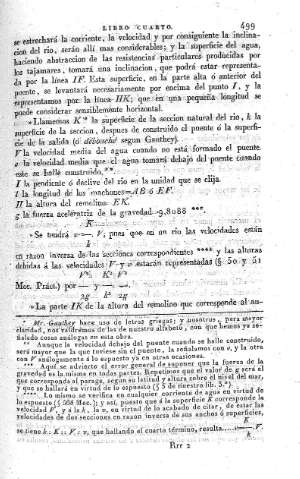 LIBRO CUARTO. 499
se estrechará la corriente, la velocidad y por consiguiente la inclina-
cion del rio, serán allí mas considerables; y la superficie del agua,
haciendo abstraccion de las resistencias particulares producidas por
los tajamares, tomará una inclinacion, que podrá estar representa-
da por la línea IF. Esta superficie, en la parte alta ó anterior del
puente, se levantará necesariamente por encima del punto I, y la
representamos por la línea HK; que en una pequeña longitud se
puede considerar sensiblemente horizontal.
»Llamemos K* la superficie de la seccion natural del rio, k la
superficie de la seccion, despues de construido el puente ó la superfi-
cie de la salida (ó débouché segun Gauthey).
V la velocidad media del agua cuando no está formado el puente
v la velocidad media que el agua tomará debajo del puente cuando
este se halle construido**.
I la pendiente ó declive del rio en la unidad que se elija.
l la longitud de los machones AB ó EF.
H la altura del remolino EK.
g la fuerza aceleratriz de la gravedad 9,8088 ***.
K
»Se tendrá v=— V, pues que en un rio las velocidades están
k
en razon inversa de las secciones correspondientes **** y las alturas
debidas á las velocidades V y v estarán representadas (§ 50 y 51
V² K² V²
Mec. Práct.) por — y — —.
2g k² 2g
»La parte IK de la altura del remolino que corresponde al au-
* Mr. Gauthey hace uso de letras griegas; y nosotros, para mayor
claridad, nos valdremos de las de nuestro alfabeto, con que hemos ya se-
ñalado cosas análogas en esta obra.
** Aunque la velocidad debajo del puente cuando se halle construido,
será mayor que la que tuviese sin el puente, la señalamos con v, y la otra
con V análogamente á lo supuesto ya en otras ocasiones.
*** Aquí se advierte el error general de suponer que la fuerza de la
gravedad es la misma en todas partes. Repetimos que el valor de g será el
que corresponda al parage, segun su latitud y altura sobre el nivel del mar,
y que se hallará en virtud de lo expuesto (§ 5 de nuestro lib. 3.º).
**** Lo mismo se verifica en cualquier corriente de agua en virtud de
lo expuesto (§ 568 Mec.); y así, puesto que á la superficie K corresponde la
velocidad V, y á la k, la v, en virtud de lo acabado de citar, de estar las
velocidades de dos secciones en razon inversa de sus anchos ó superficies,
K
se tiene k : K :: V : v, que hallando el cuarto término, resulta v=— V.
k
Rrr 2